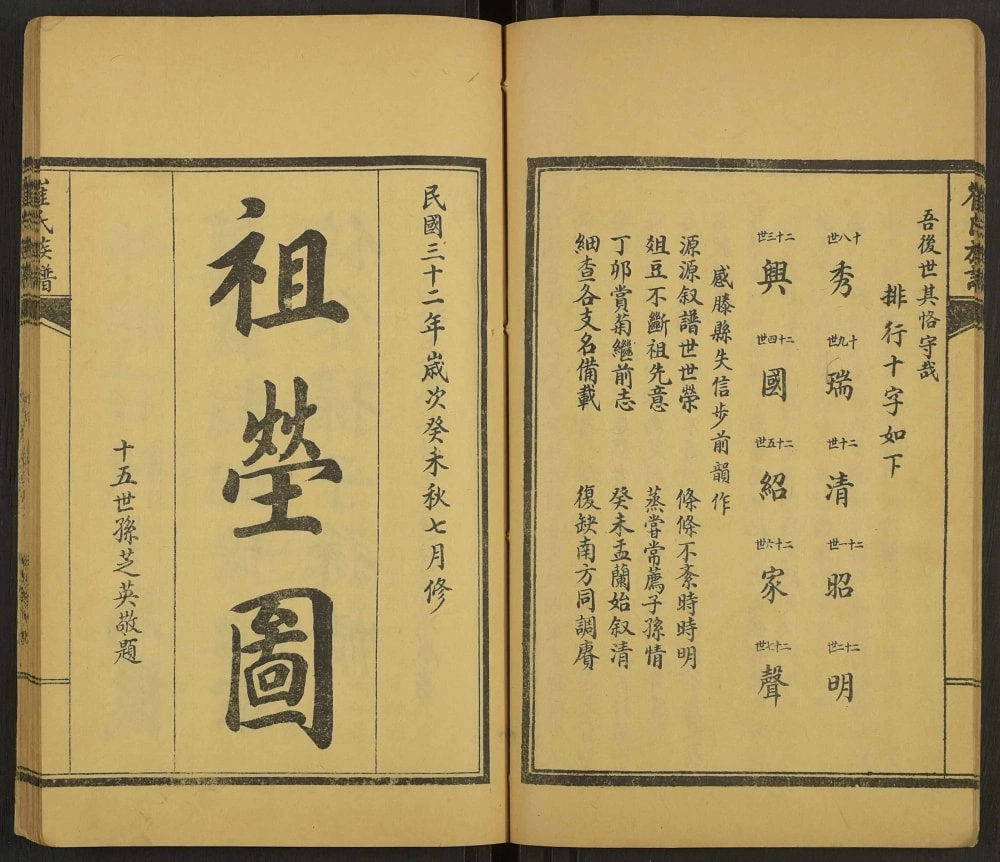 吾後世其恪守哉
排行十字如下
十八世 秀 十九世 瑞 二十世 清 二十一世 昭 二十二世 明
二十三世 興 二十四世 國 二十五世 紹 二十六世 家 二十七世 聲
感滕縣失信步前韻作
源源叙譜世世榮 條條不紊時時明
俎豆不斷祖先意 蒸嘗常薦子孫情
丁卯賞菊繼前志 癸未盂蘭始叙清
細查各支名備載 復缺南方同調賡
民國三十二年歲次癸未秋七月修
祖塋圖
十五世孫芝英敬題
崔氏族譜